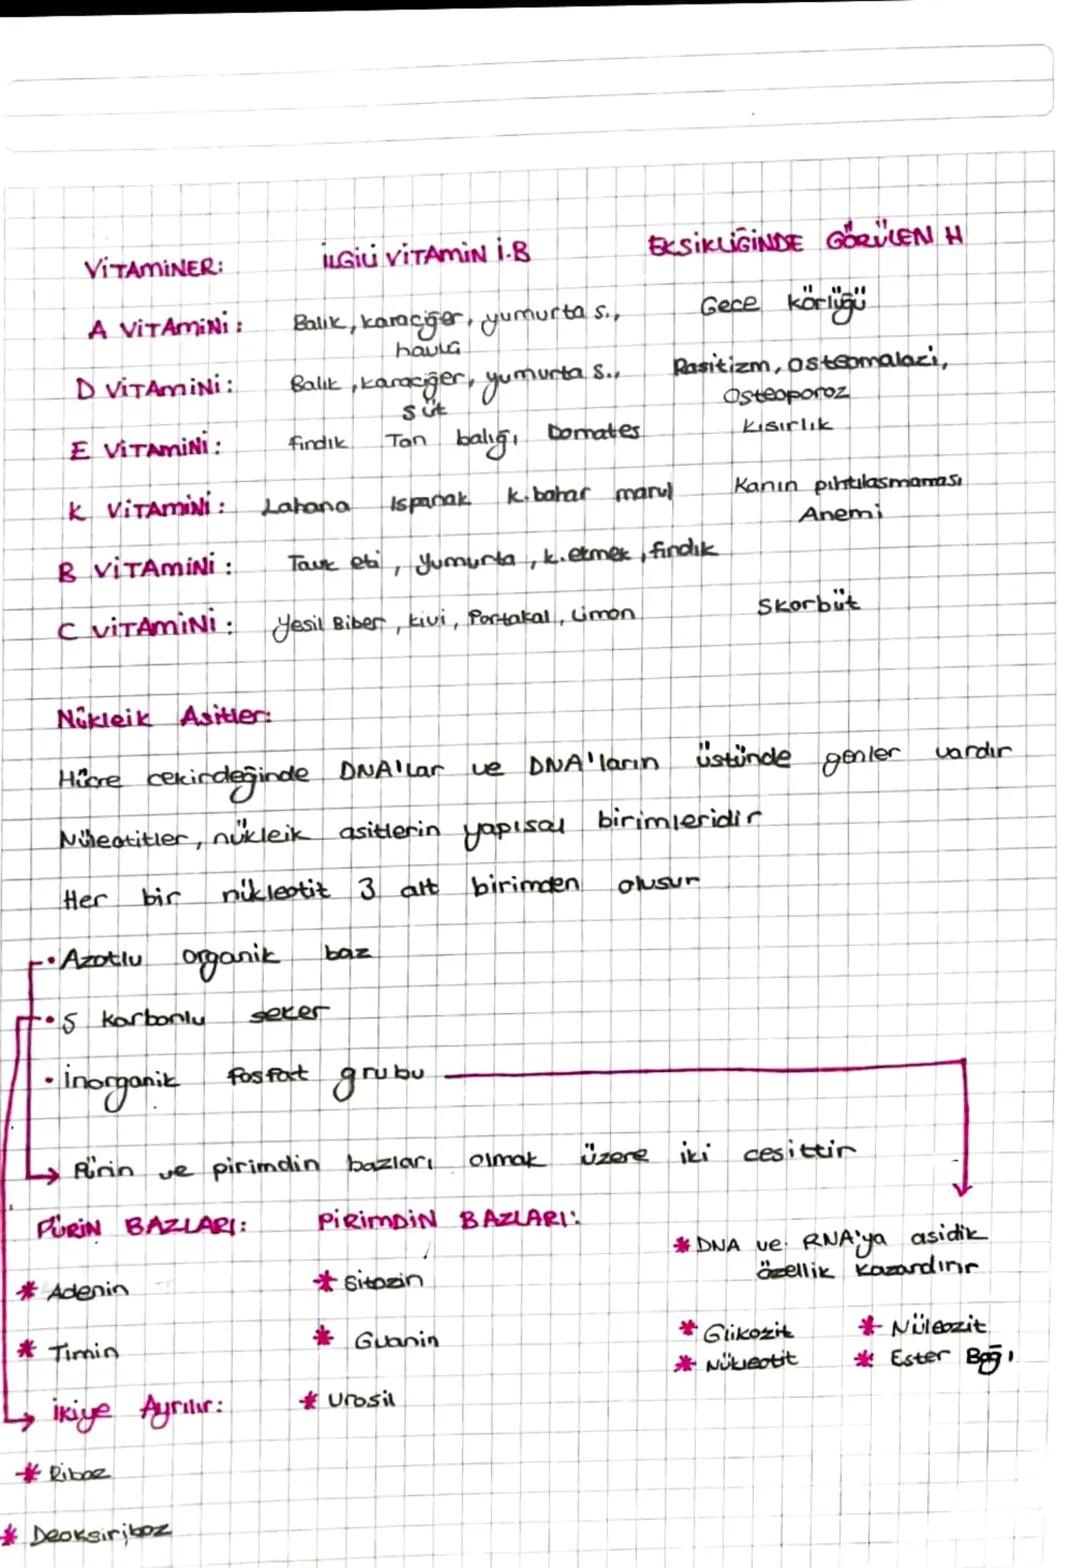 VİTAMİNER: İLGİLİ VİTAMİN İ.B EKSİKLİĞİNDE GÖRÜLEN H
A VİTAMİNİ: Balık, karaciğer, yumurta s., Gece körlüğü
havuç
D VİTAMİNİ: Balık, karaciğer, yumurta s., Rasitizm, osteomalazi,
süt Osteoporoz
E VİTAMİNİ: fındık Ton balığı, Domates kısırlık
K VİTAMİNİ: Lahana Ispanak k.bahar marul Kanın pıhtılasmaması
Anemi
B VİTAMİNİ: Tavk eti, Yumurta, k.etmek, fındık
C VİTAMİNİ: Yesil Biber, kivi, Portakal, Limon Skorbüt
Nükleik Asitler:
Hücre cekirdeğinde DNA'lar ve DNA'ların üstünde genler vardır
Nüleotitler, nükleik asitlerin yapısal birimleridir
Her bir nükleotit 3 alt birimden olusur
• Azotlu organik baz
• 5 karbonlu seker
• inorganik fosfat grubu
Pürin ve pirimdin bazları olmak üzere iki cesittir
PÜRİN BAZLARI: PİRİMDİN BAZLARI:
* DNA ve RNA'ya asidik
özellik kazandırır
* Adenin * Sitozin
* Timin * Guanin
* Glikozit * Nüleozit
* Nükleotit * Ester Bağı
İkiye Ayrılır: * Urasil
* Riboz
* Deoksiriboz